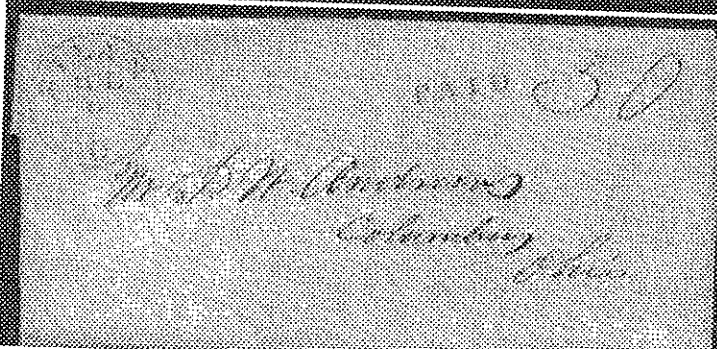 PAID 30
Mr. B. W. Andrews
Columbus
Ohio